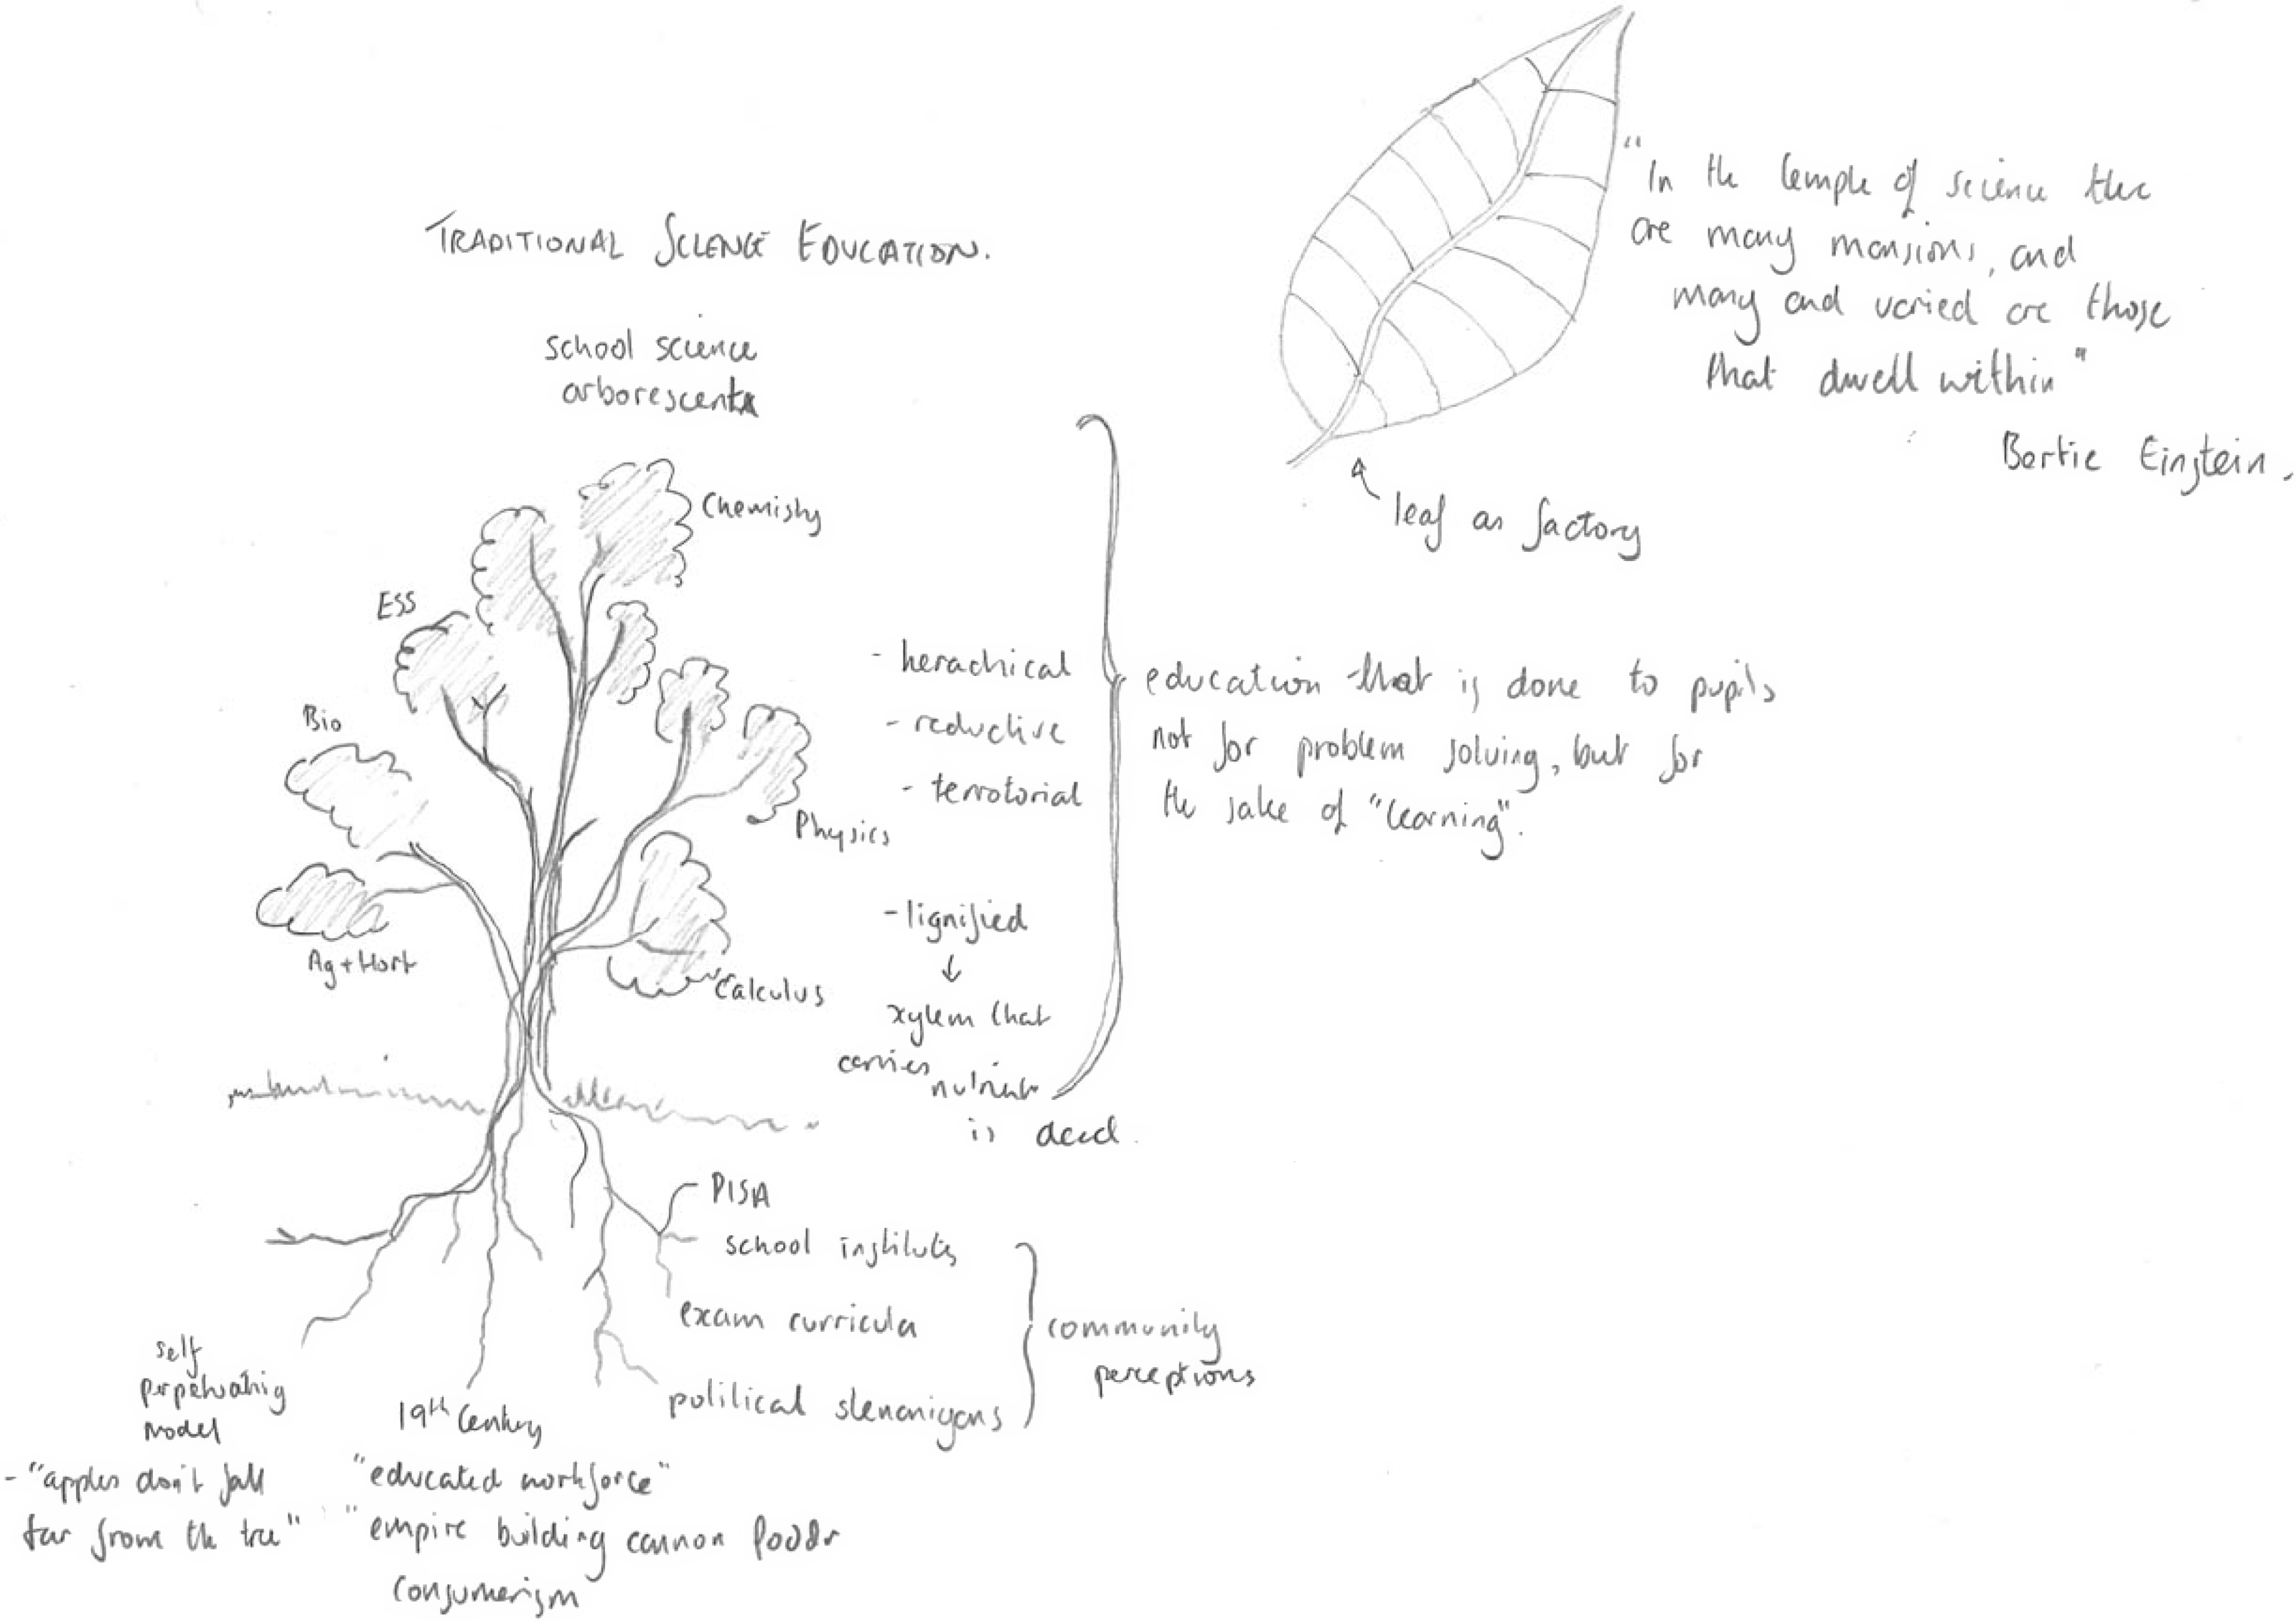 TRADITIONAL SCIENCE EDUCATION.
school science
arborescent
"In the temple of science there
are many mansions, and
many and varied are those
that dwell within"
Bertie Einstein.
leaf as factory
Chemistry
ESS
Bio
Ag + Hort
Physics
Calculus
- herachical
- reductive
- terrotorial
- lignified
↓
xylem that
carries nutrients
is dead.
education that is done to pupils
not for problem solving, but for
the sake of "learning".
PISA
school institutes
exam curricula
political shenanigans
community
perceptions
self
perpetuating
model
- "apples don't fall
far from the tree"
19th Century
"educated workforce"
"empire building cannon fodder
consumerism